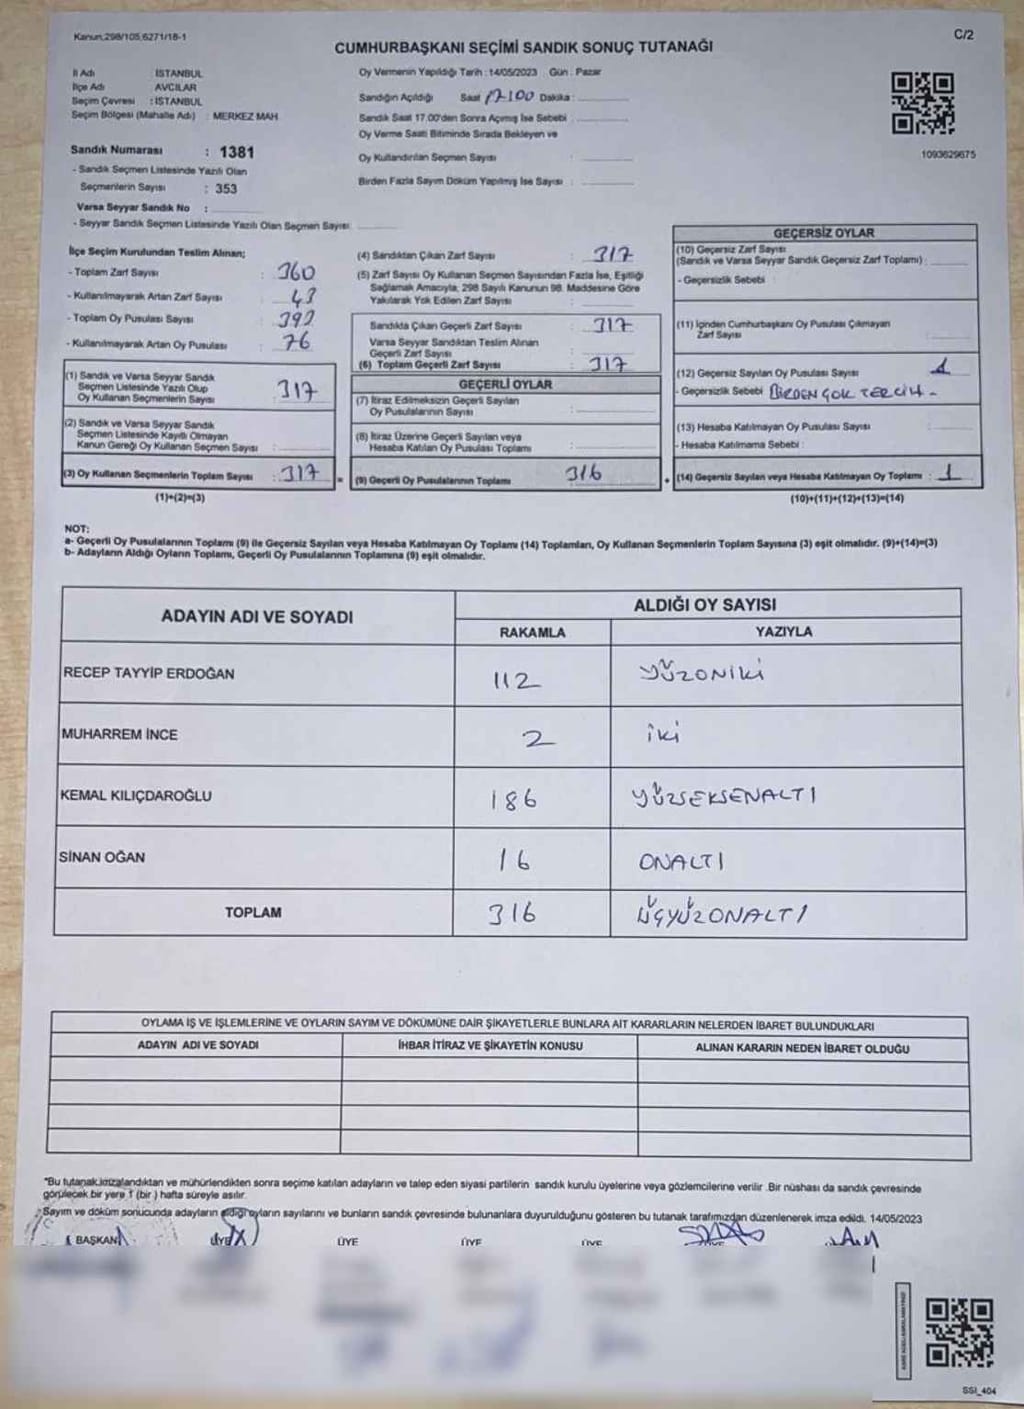 Kanun:298/105,6271/18-1
C/2
CUMHURBAŞKANI SEÇİMİ SANDIK SONUÇ TUTANAĞI
İl Adı İSTANBUL
İlçe Adı AVCILAR
Seçim Çevresi : İSTANBUL
Seçim Bölgesi (Mahalle Adı) : MERKEZ MAH.
Sandık Numarası : 1381
- Sandık Seçmen Listesinde Yazılı Olan
Seçmenlerin Sayısı : 353
Varsa Seyyar Sandık No :
- Seyyar Sandık Seçmen Listesinde Yazılı Olan Seçmen Sayısı :
Oy Vermenin Yapıldığı Tarih : 14/05/2023 Gün : Pazar
Sandığın Açıldığı Saat 17:00 Dakika :
Sandık Saat 17.00'den Sonra Açımış İse Sebebi :
Oy Verme Saati Bitiminde Sırada Bekleyen ve
Oy Kullandırılan Seçmen Sayısı :
Birden Fazla Sayım Döküm Yapılmış İse Sayısı :
1093629675
İlçe Seçim Kurulundan Teslim Alınan;
- Toplam Zarf Sayısı : 360
- Kullanılmayarak Artan Zarf Sayısı : 43
- Toplam Oy Pusulası Sayısı :
- Kullanılmayarak Artan Oy Pusulası : 76
(1) Sandık ve Varsa Seyyar Sandık
Seçmen Listesinde Yazılı Olup
Oy Kullanan Seçmenlerin Sayısı : 317
(2) Sandık ve Varsa Seyyar Sandık
Seçmen Listesinde Kayıtlı Olmayan
Kanun Gereği Oy Kullanan Seçmen Sayısı :
(3) Oy Kullanan Seçmenlerin Toplam Sayısı : 317
(1)+(2)=(3)
(4) Sandıktan Çıkan Zarf Sayısı : 317
(5) Zarf Sayısı Oy Kullanan Seçmen Sayısından Fazla İse, Eşitliği
Sağlamak Amacıyla, 298 Sayılı Kanunun 98. Maddesine Göre
Yakılarak Yok Edilen Zarf Sayısı :
Sandıkta Çıkan Geçerli Zarf Sayısı : 317
Varsa Seyyar Sandıktan Teslim Alınan
Geçerli Zarf Sayısı :
(6) Toplam Geçerli Zarf Sayısı : 317
GEÇERLİ OYLAR
(7) İtiraz Edilmeksizin Geçerli Sayılan
Oy Pusulalarının Sayısı :
(8) İtiraz Üzerine Geçerli Sayılan veya
Hesaba Katılan Oy Pusulası Toplamı :
= (9) Geçerli Oy Pusulalarının Toplamı 316
GEÇERSİZ OYLAR
(10) Geçersiz Zarf Sayısı
(Sandık ve Varsa Seyyar Sandık Geçersiz Zarf Toplamı) :
- Geçersizlik Sebebi :
(11) İçinden Cumhurbaşkanı Oy Pusulası Çıkmayan
Zarf Sayısı :
(12) Geçersiz Sayılan Oy Pusulası Sayısı : 1
- Geçersizlik Sebebi BİRDEN ÇOK TERCİH -
(13) Hesaba Katılmayan Oy Pusulası Sayısı :
- Hesaba Katılmama Sebebi :
+ (14) Geçersiz Sayılan veya Hesaba Katılmayan Oy Toplamı : 1
(10)+(11)+(12)+(13)=(14)
NOT:
a- Geçerli Oy Pusulalarının Toplamı (9) ile Geçersiz Sayılan veya Hesaba Katılmayan Oy Toplamı (14) Toplamları, Oy Kullanan Seçmenlerin Toplam Sayısına (3) eşit olmalıdır. (9)+(14)=(3)
b- Adayların Aldığı Oyların Toplamı, Geçerli Oy Pusulalarının Toplamına (9) eşit olmalıdır.
ADAYIN ADI VE SOYADI
ALDIĞI OY SAYISI
RAKAMLA YAZIYLA
RECEP TAYYİP ERDOĞAN 112 YÜZONİKİ
MUHARREM İNCE 2 İKİ
KEMAL KILIÇDAROĞLU 186 YÜZSEKSENALTI
SİNAN OĞAN 16 ONALTI
TOPLAM 316 ÜÇYÜZONALTI
OYLAMA İŞ VE İŞLEMLERİNE VE OYLARIN SAYIM VE DÖKÜMÜNE DAİR ŞİKAYETLERLE BUNLARA AİT KARARLARIN NELERDEN İBARET BULUNDUKLARI
ADAYIN ADI VE SOYADI İHBAR İTİRAZ VE ŞİKAYETİN KONUSU ALINAN KARARIN NEDEN İBARET OLDUĞU
*Bu tutanak,imzalandıktan ve mühürlendikten sonra seçime katılan adayların ve talep eden siyasi partilerin sandık kurulu üyelerine veya gözlemcilerine verilir .Bir nüshası da sandık çevresinde
görülecek bir yere 1 (bir ) hafta süreyle asılır.
Sayım ve döküm sonucunda adayların aldığı oyların sayılarını ve bunların sandık çevresinde bulunanlara duyurulduğunu gösteren bu tutanak tarafımızdan düzenlenerek imza edildi. 14/05/2023
BAŞKAN ÜYE ÜYE ÜYE ÜYE
SSI_404